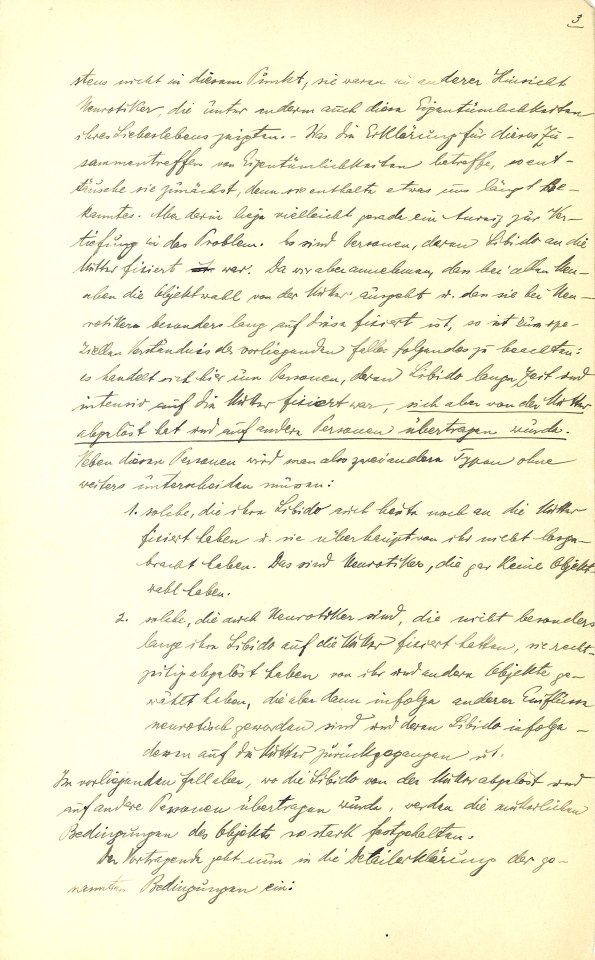 3
stens nicht in diesem Punkt, sie waren in anderer Hinsicht
Neurotiker, die unter anderm auch diese Eigentümlichkeiten
ihres Liebeslebens zeigten. – Was die Erklärung für dieses Zu-
sammentreffen von Eigentümlichkeiten betreffe, so ent-
täusche sie zunächst, denn sie enthalte etwas uns längst Be-
kanntes. Aber darin liege vielleicht gerade ein Anreiz zur Ver-
tiefung in das Problem. Es sind Personen, deren Libido an die
Mutter fixiert war. Da wir aber annehmen, dass bei allen Men-
schen die Objektwahl von der Mutter ausgeht u. dass sie bei Neu-
rotikern besonders lang auf diese fixiert ist, so ist zum spe-
ziellen Verständnis des vorliegenden Falles folgendes zu beachten:
es handelt sich hier um Personen, deren Libido lange Zeit und
intensiv auf die Mutter fixiert war, sich aber von der Mutter
abgelöst hat und auf andere Personen übertragen wurde.
Neben diesen Personen wird man also zwei andere Typen ohne
weiters unterscheiden müssen:
1. solche, die ihre Libido auch heute noch an die Mutter
fixiert haben u. sie überhaupt von ihr nicht losge-
bracht haben. Das sind Neurotiker, die gar keine Objekt-
wahl haben.
2. solche, die auch Neurotiker sind, die nicht besonders
lange ihre Libido auf die Mutter fixiert hatten, sie recht-
zeitig abgelöst haben von ihr und andere Objekte ge-
wählt haben, die aber dann infolge anderer Einflüsse
neurotisch geworden sind und deren Libido infolge-
dessen auf die Mutter zurückgegangen ist.
Im vorliegenden Fall aber, wo die Libido von der Mutter abgelöst und
auf andere Personen übertragen wurde, werden die mütterlichen
Bedingungen des Objekts so stark festgehalten.
Der Vortragende geht nun in die Detailerklärung der ge-
nannten Bedingungen ein: